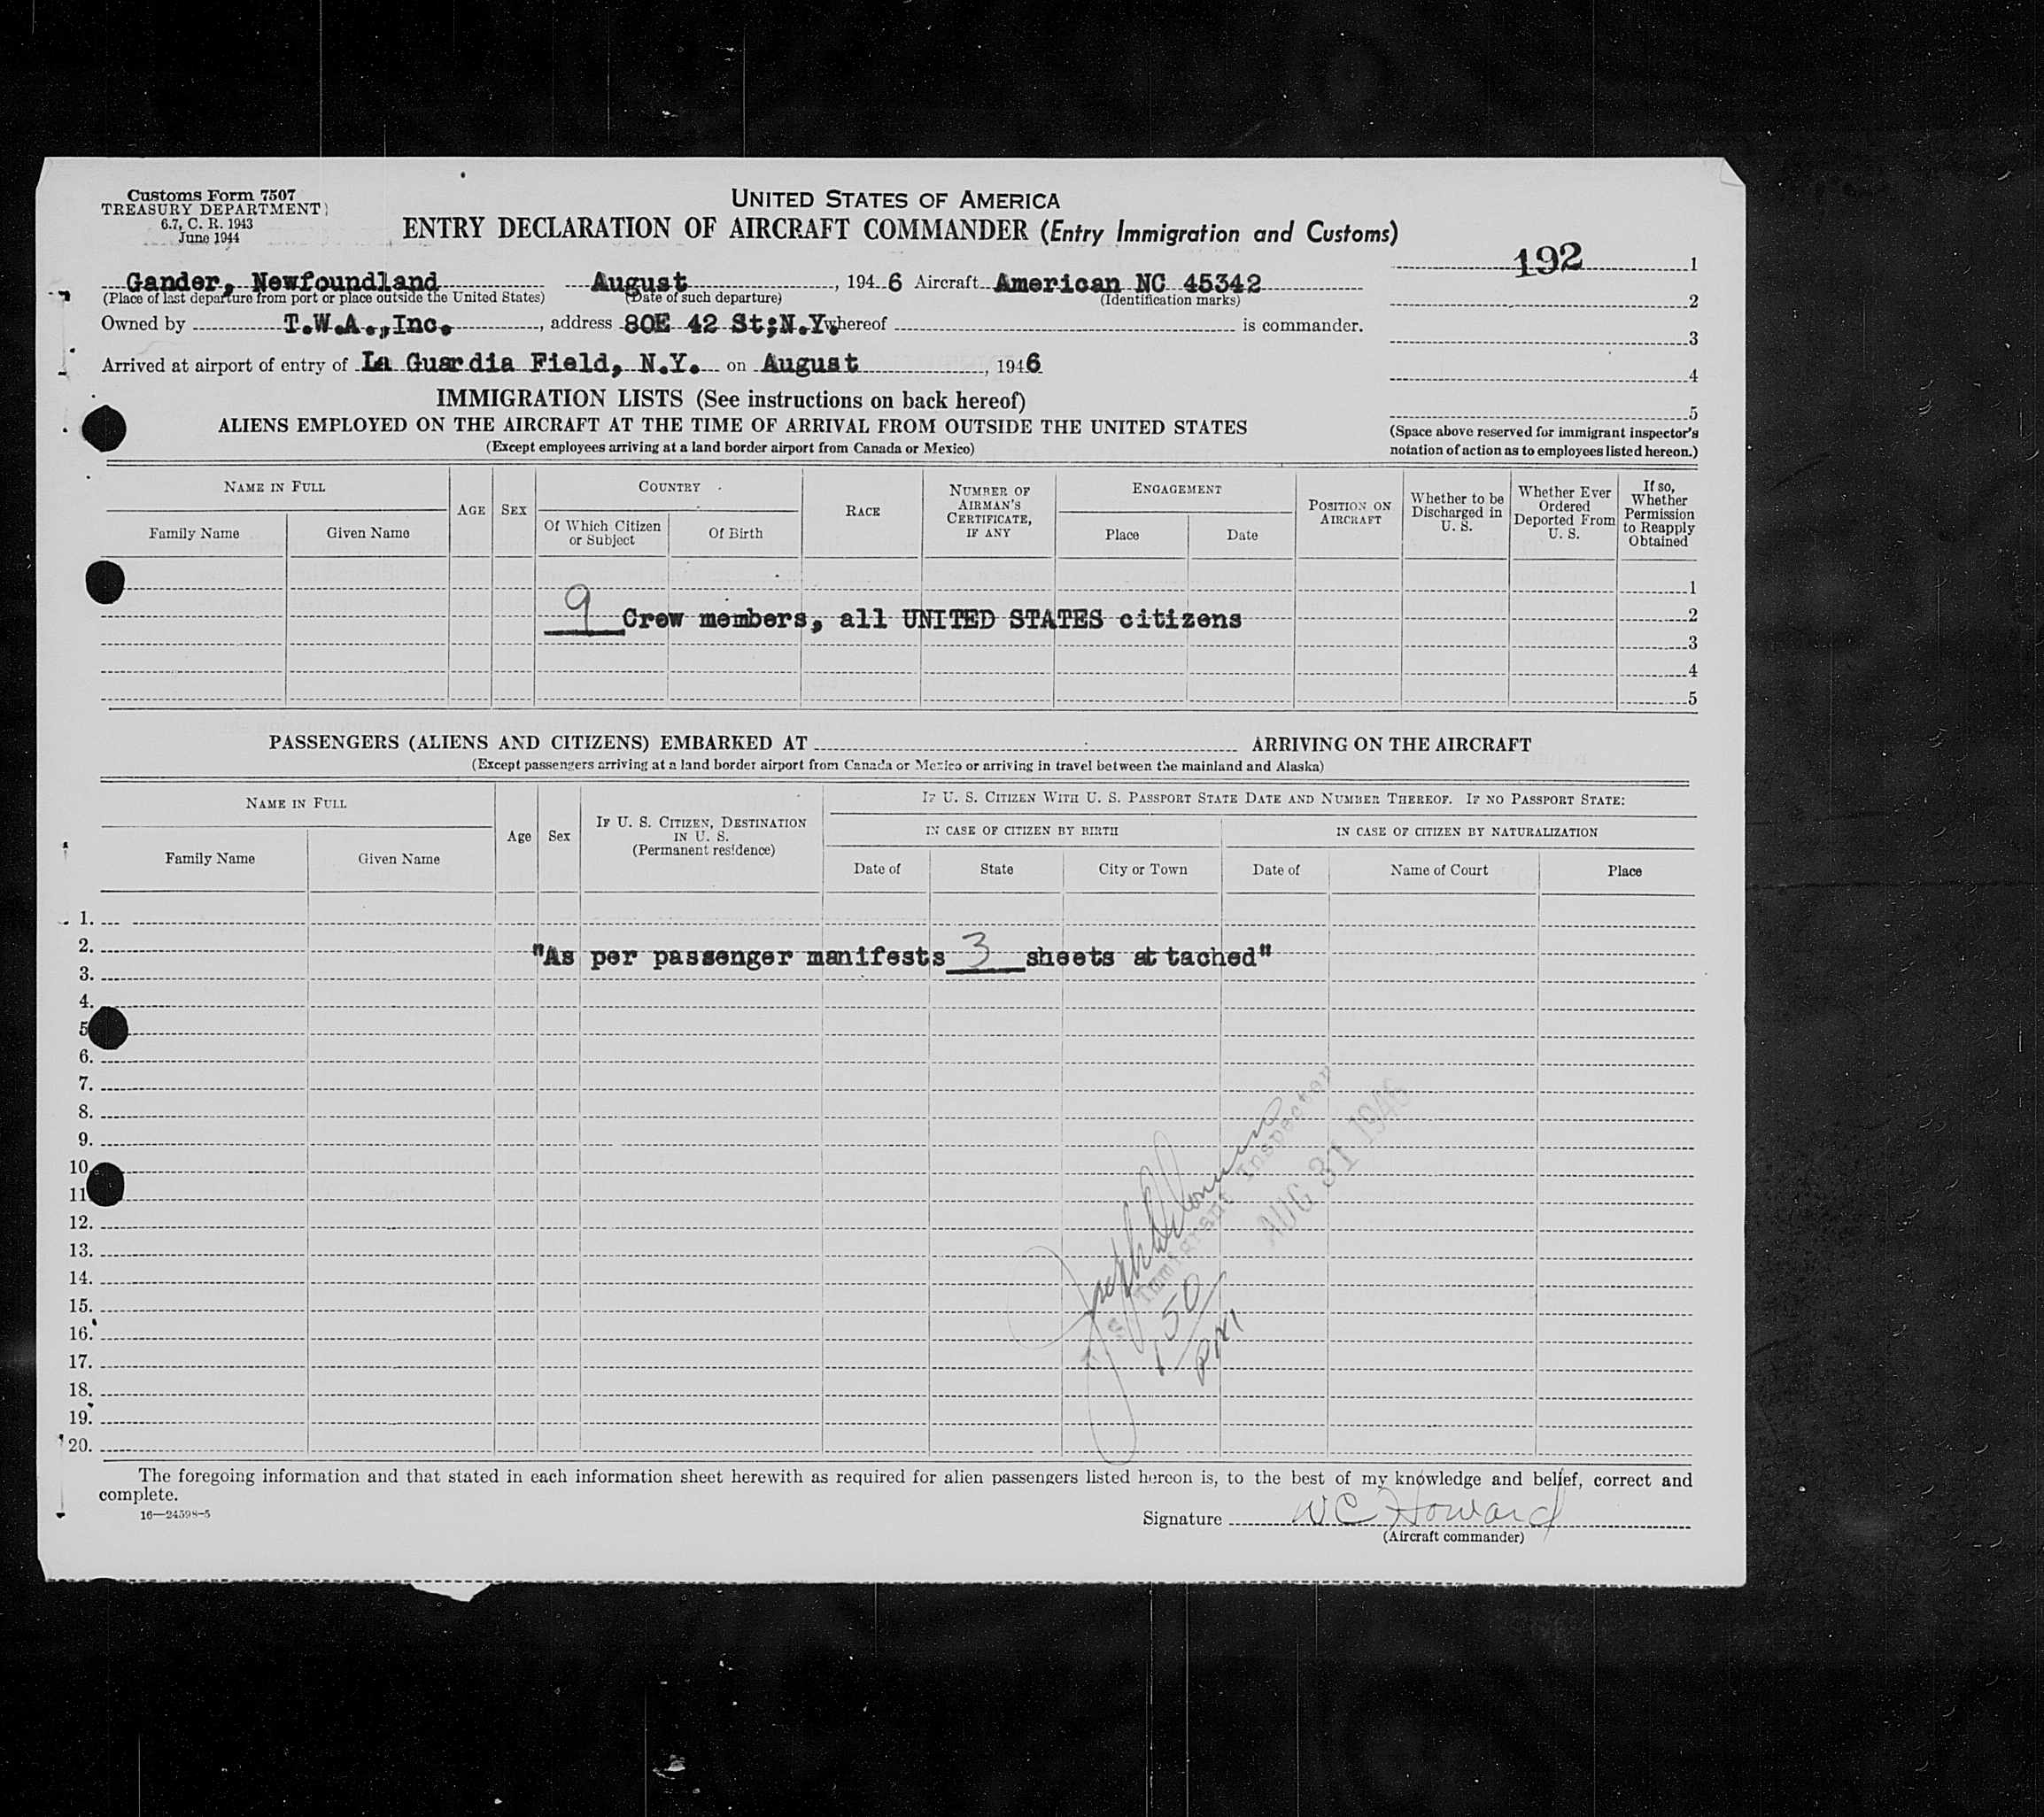 Customs Form 7507
TREASURY DEPARTMENT
6.7, C. R. 1943
June 1944
UNITED STATES OF AMERICA
ENTRY DECLARATION OF AIRCRAFT COMMANDER (Entry Immigration and Customs)
192 1
Gander, Newfoundland August , 1946 Aircraft American NC 45342
(Place of last departure from port or place outside the United States) (Date of such departure) (Identification marks)
2
Owned by T.W.A., Inc. , address 80E 42 St;N.Y. whereof is commander.
3
Arrived at airport of entry of La Guardia Field, N.Y. on August , 1946
4
IMMIGRATION LISTS (See instructions on back hereof)
5
ALIENS EMPLOYED ON THE AIRCRAFT AT THE TIME OF ARRIVAL FROM OUTSIDE THE UNITED STATES
(Except employees arriving at a land border airport from Canada or Mexico)
(Space above reserved for immigrant inspector's
notation of action as to employees listed hereon.)
NAME IN FULL
Family Name
Given Name
AGE
SEX
COUNTRY
Of Which Citizen
or Subject
Of Birth
RACE
NUMBER OF
AIRMAN'S
CERTIFICATE,
IF ANY
ENGAGEMENT
Place
Date
POSITION ON
AIRCRAFT
Whether to be
Discharged in
U. S.
Whether Ever
Ordered
Deported From
U. S.
If so,
Whether
Permission
to Reapply
Obtained
1
9 Crew members, all UNITED STATES citizens 2
3
4
5
PASSENGERS (ALIENS AND CITIZENS) EMBARKED AT ARRIVING ON THE AIRCRAFT
(Except passengers arriving at a land border airport from Canada or Mexico or arriving in travel between the mainland and Alaska)
NAME IN FULL
Family Name
Given Name
Age
Sex
IF U. S. CITIZEN, DESTINATION
IN U. S.
(Permanent residence)
IF U. S. CITIZEN WITH U. S. PASSPORT STATE DATE AND NUMBER THEREOF. IF NO PASSPORT STATE:
IN CASE OF CITIZEN BY BIRTH
IN CASE OF CITIZEN BY NATURALIZATION
Date of
State
City or Town
Date of
Name of Court
Place
1.
2. "As per passenger manifests 3 sheets attached"
3.
4.
5
6.
7.
8.
9.
10.
11
12.
13.
14.
15.
16.
17.
18.
19.
20.
Immigrant Inspector
AUG 31 1946
1 50
PM
The foregoing information and that stated in each information sheet herewith as required for alien passengers listed hereon is, to the best of my knowledge and belief, correct and
complete.
16—24598-5
Signature W C Howard
(Aircraft commander)